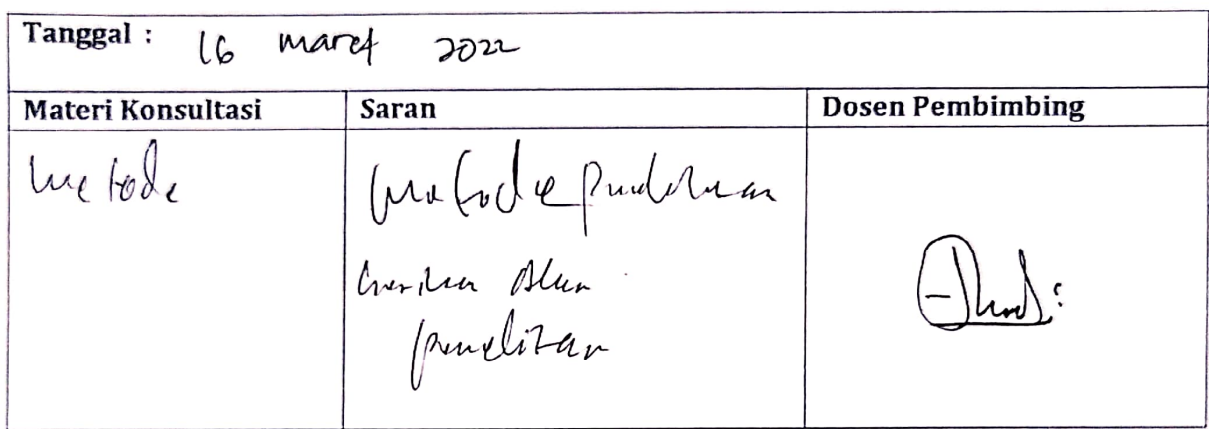 Tanggal : 16 maret 2022
Materi Konsultasi Saran Dosen Pembimbing
Metode
Metode
penelitian